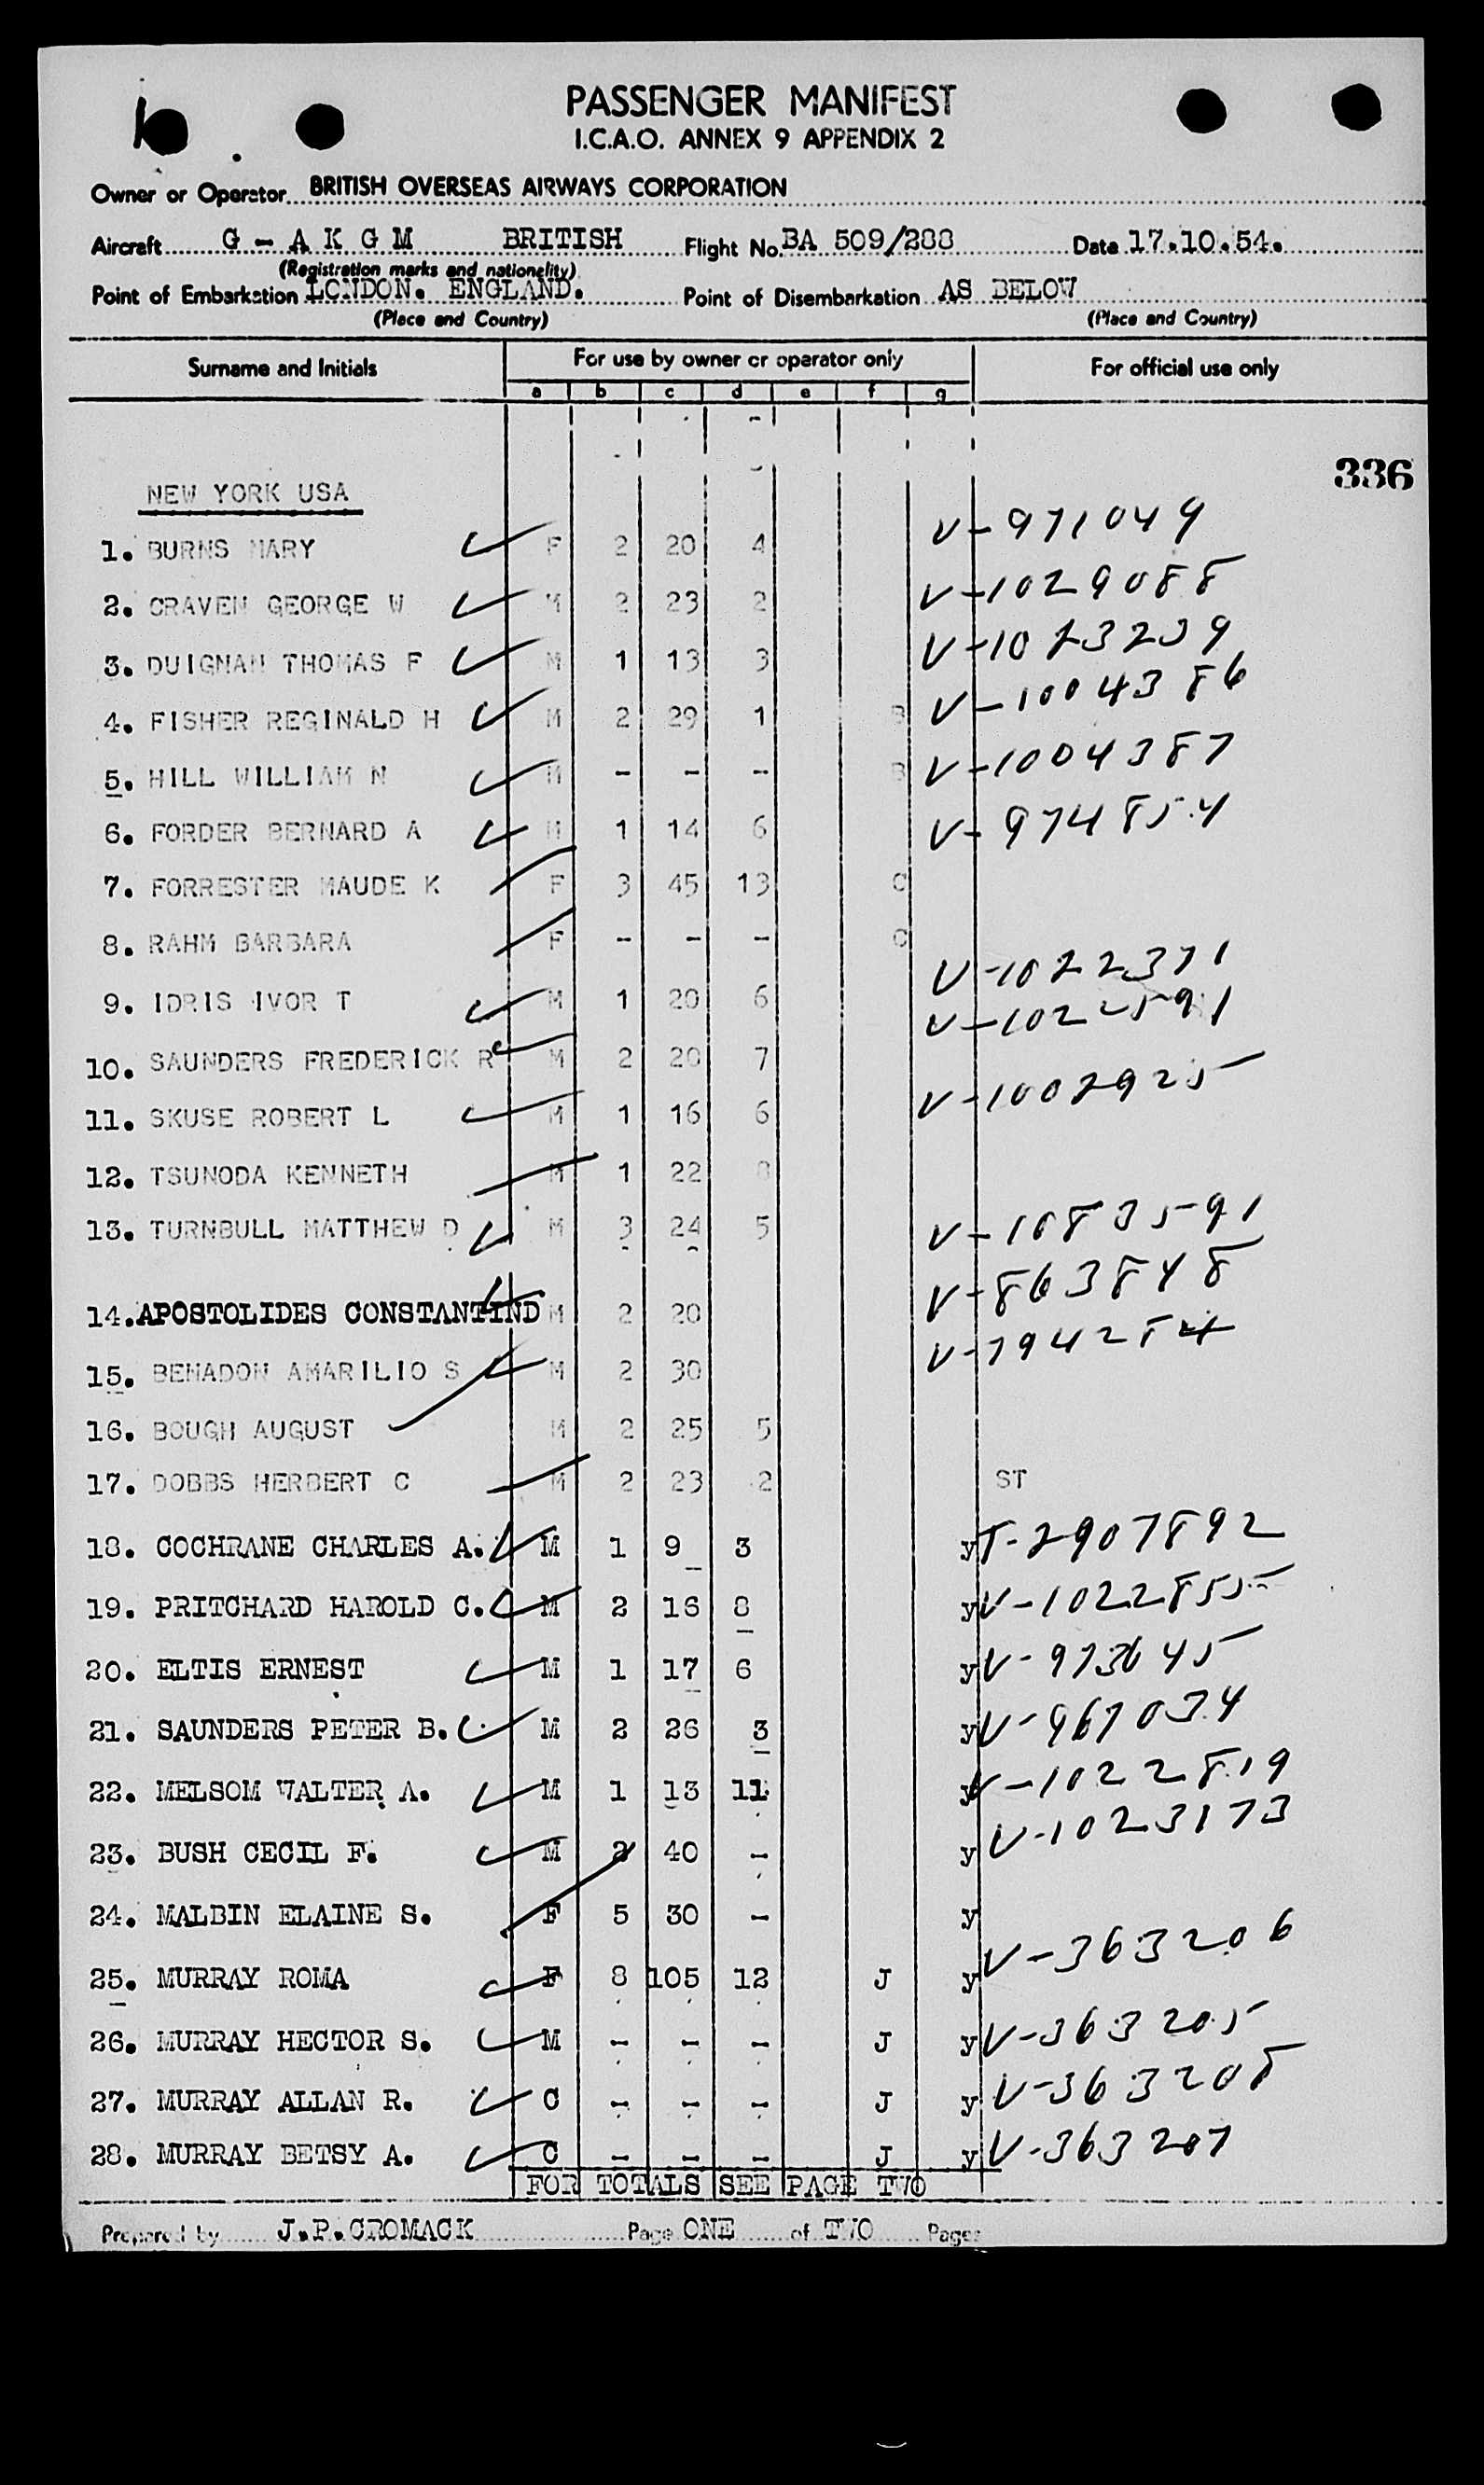 PASSENGER MANIFEST
I.C.A.O. ANNEX 9 APPENDIX 2
Owner or Operator BRITISH OVERSEAS AIRWAYS CORPORATION
Aircraft G - A K G M BRITISH Flight No. BA 509/288 Date 17.10.54.
(Registration marks and nationality)
Point of Embarkation LONDON. ENGLAND. Point of Disembarkation AS BELOW
(Place and Country) (Place and Country)
Surname and Initials For use by owner or operator only For official use only
a b c d e f g
336
NEW YORK USA
1. BURNS MARY F 2 20 4 V-971049
2. CRAVEN GEORGE W M 2 23 2 V-1029088
3. DUIGNAN THOMAS F M 1 13 3 V-1023239
4. FISHER REGINALD H M 2 29 1 B V-1004386
5. HILL WILLIAM N M - - - B V-1004387
6. FORDER BERNARD A M 1 14 6 V-974854
7. FORRESTER MAUDE K F 3 45 13 C
8. RAHM BARBARA F - - - C
9. IDRIS IVOR T M 1 20 6 V-1022371
10. SAUNDERS FREDERICK R M 2 20 7 V-1022591
11. SKUSE ROBERT L M 1 16 6 V-1002925
12. TSUNODA KENNETH M 1 22 8
13. TURNBULL MATTHEW D M 3 24 5 V-1083591
14. APOSTOLIDES CONSTANTIND M 2 20 V-863848
15. BENADON AMARILIO S M 2 30 V-794284
16. BOUGH AUGUST M 2 25 5
17. DOBBS HERBERT C M 2 23 2 ST
18. COCHRANE CHARLES A. M 1 9 3 y T-2907892
19. PRITCHARD HAROLD C. M 2 16 8 y V-1022855
20. ELTIS ERNEST M 1 17 6 y V-973645
21. SAUNDERS PETER B. M 2 26 3 y V-967034
22. MELSOM WALTER A. M 1 13 11 y V-1022819
23. BUSH CECIL F. M 2 40 - y V-1023173
24. MALBIN ELAINE S. F 5 30 - y
25. MURRAY ROMA F 8 105 12 J y V-363206
26. MURRAY HECTOR S. M - - - J y V-363205
27. MURRAY ALLAN R. C - - - J y V-363208
28. MURRAY BETSY A. C - - - J y V-363207
FOR TOTALS SEE PAGE TWO
Prepared by J.P.CROMACK Page ONE of TWO Pages